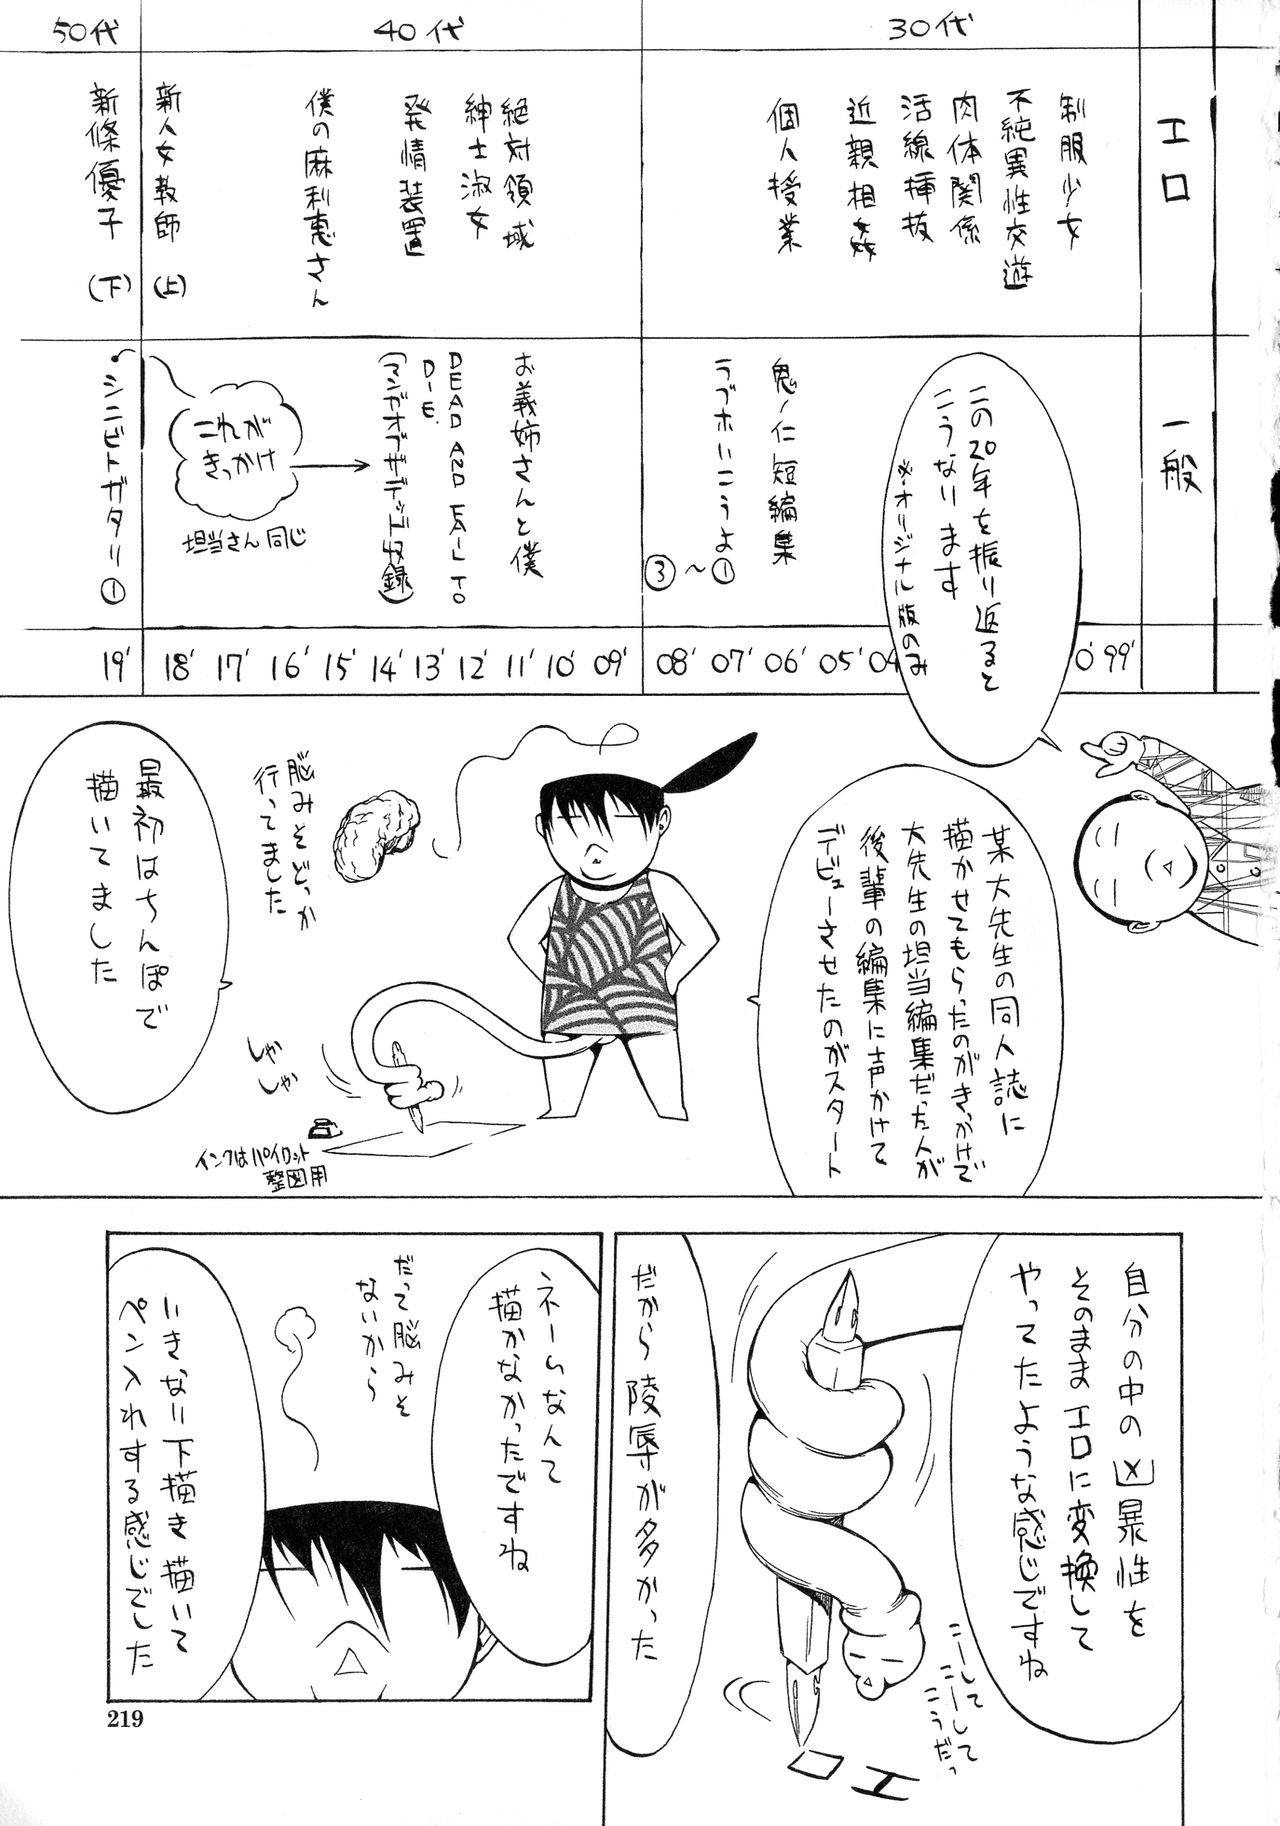 30代
40代
50代
エロ
制服少女
不純異性交遊
肉体関係
活線挿抜
近親相姦
個人授業
絶対領域
紳士淑女
発情装置
僕の麻利恵さん
新人女教師(上)
新條優子(下)
一般
鬼ノ仁短編集
ラブホいこうよ①〜③
お義姉さんと僕
DEAD AND FAIL TO
DIE.
(マンガオブザデッド収録)
これが
きっかけ
担当さん同じ
シニビトガタリ①
99'
0
04
05'
06'
07'
08'
09'
10'
11'
12'
13'
14'
15'
16'
17'
18'
19'
この20年を振り返ると
こうなります
※オリジナル版のみ
某大先生の同人誌に
描かせてもらったのがきっかけで
大先生の担当編集だった人が
後輩の編集に声かけて
デビューさせたのがスタート
脳みそどっか
行ってました
最初はちんぽで
描いてました
しゃか
しゃか
インクはパイロット
整図用
自分の中の凶暴性を
そのままエロに変換して
やってたような感じですね
こーして
こーして
こうだっ
エロ
だから陵辱が多かった
ネームなんて
描かなかったですね
だって脳みそ
ないから
いきなり下描き描いて
ペン入れする感じでした
219